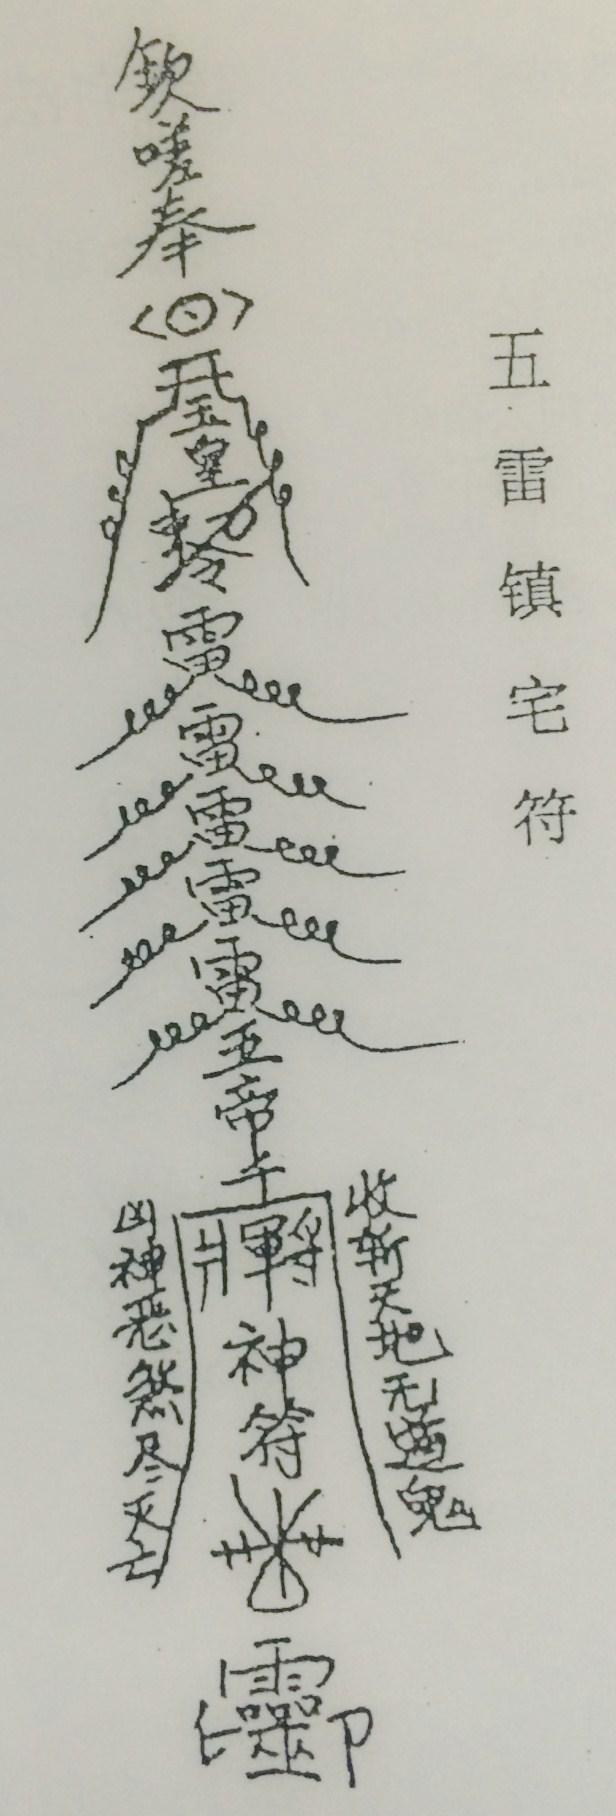 五雷镇宅符
欽嗟奉
玉皇勅令
雷雷雷雷雷
五帝
將軍
神符
靈印
收斬天地无道鬼
凶神恶煞尽灭亡